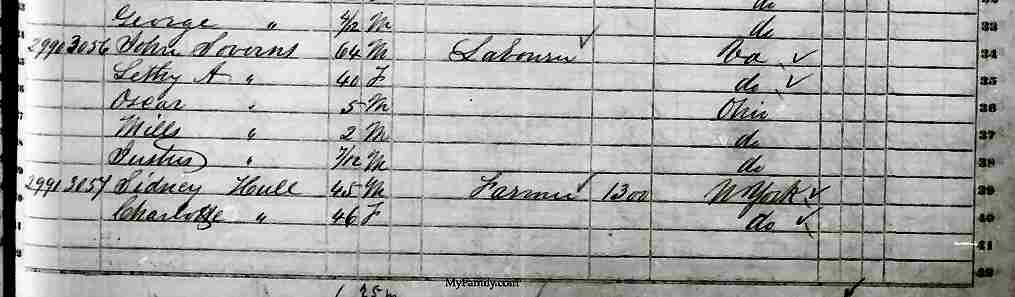 do 32
George " 4/12 M do 33
2990 3056 John Soverns 64 M Labourer Va 34
Lethy A " 40 F do 35
Oscar " 5 M Ohio 36
Mills " 2 M do 37
Justus " 7/12 M do 38
3057 Sidney Hull 45 M Farmer 1300 N York 39
Charlotte " 46 F do 40
41
42
MyFamily.com